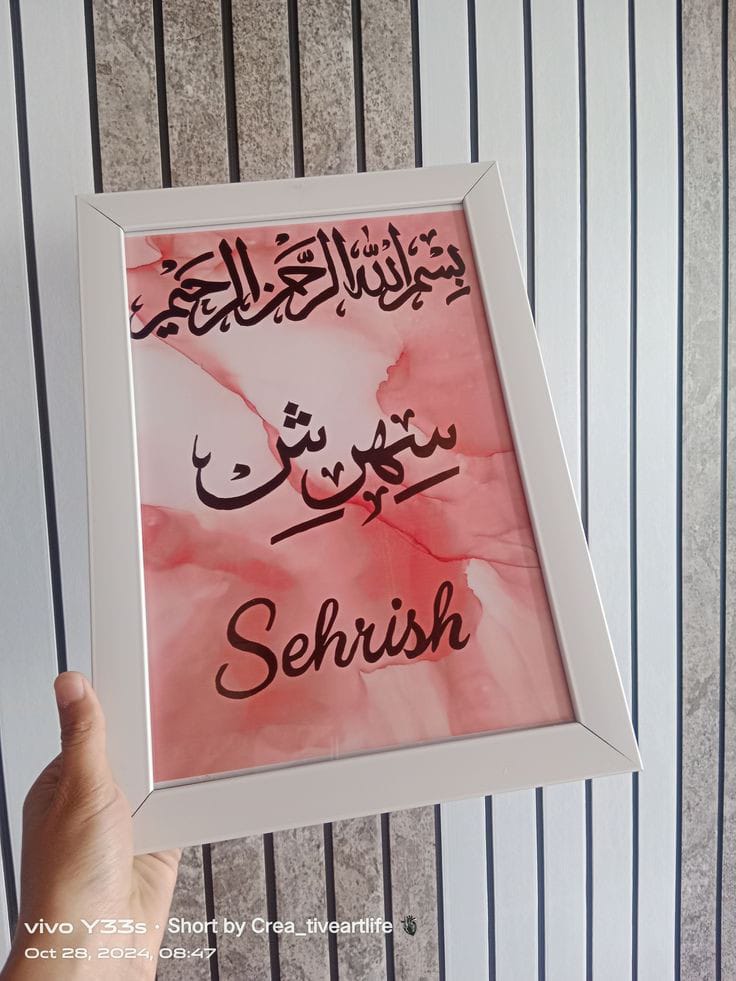 بِسْمِ اللهِ الرَّحْمٰنِ الرَّحِيْمِ
سِہرِش
Sehrish
vivo Y33s · Short by Crea_tiveartlife
Oct 28, 2024, 08:47